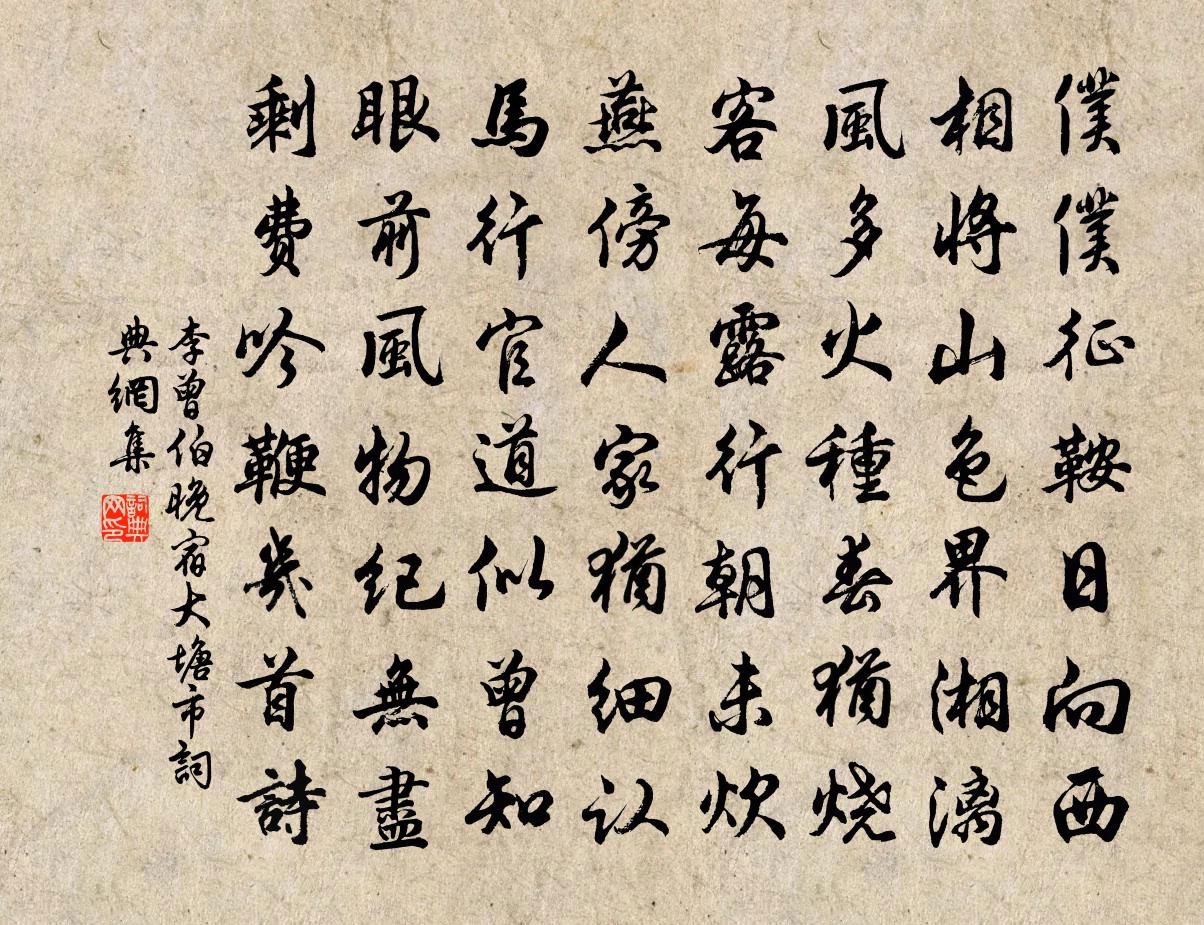 僕僕征鞍日向西
相將山色界湘漓
風多火種春猶烧
客每露行朝未炊
燕傍人家猶细认
馬行官道似曾知
眼前風物纪無盡
剩费吟鞭幾首詩
李曾伯晚宿大塘市詞
典網集
詞典
网印